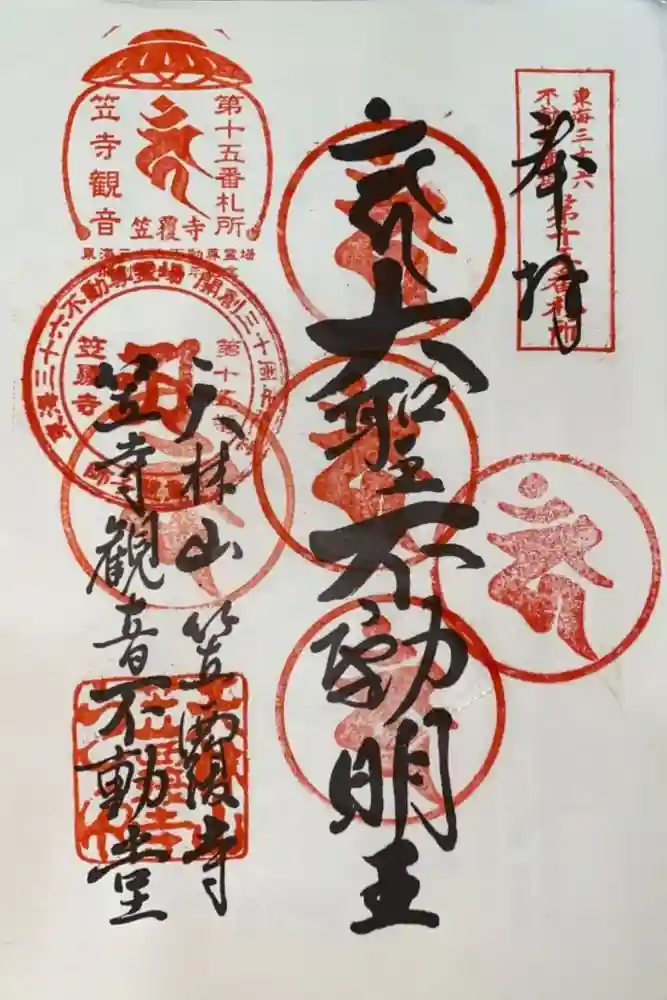 奉拝
東海三十六
不動尊霊場
第十五番札所
大聖不動明王
天林山 笠覆寺
笠寺観音不動堂
第十五番札所
笠寺観音
笠覆寺
東海三十六不動尊霊場
東海三十六不動尊霊場 開創三十周年
笠覆寺